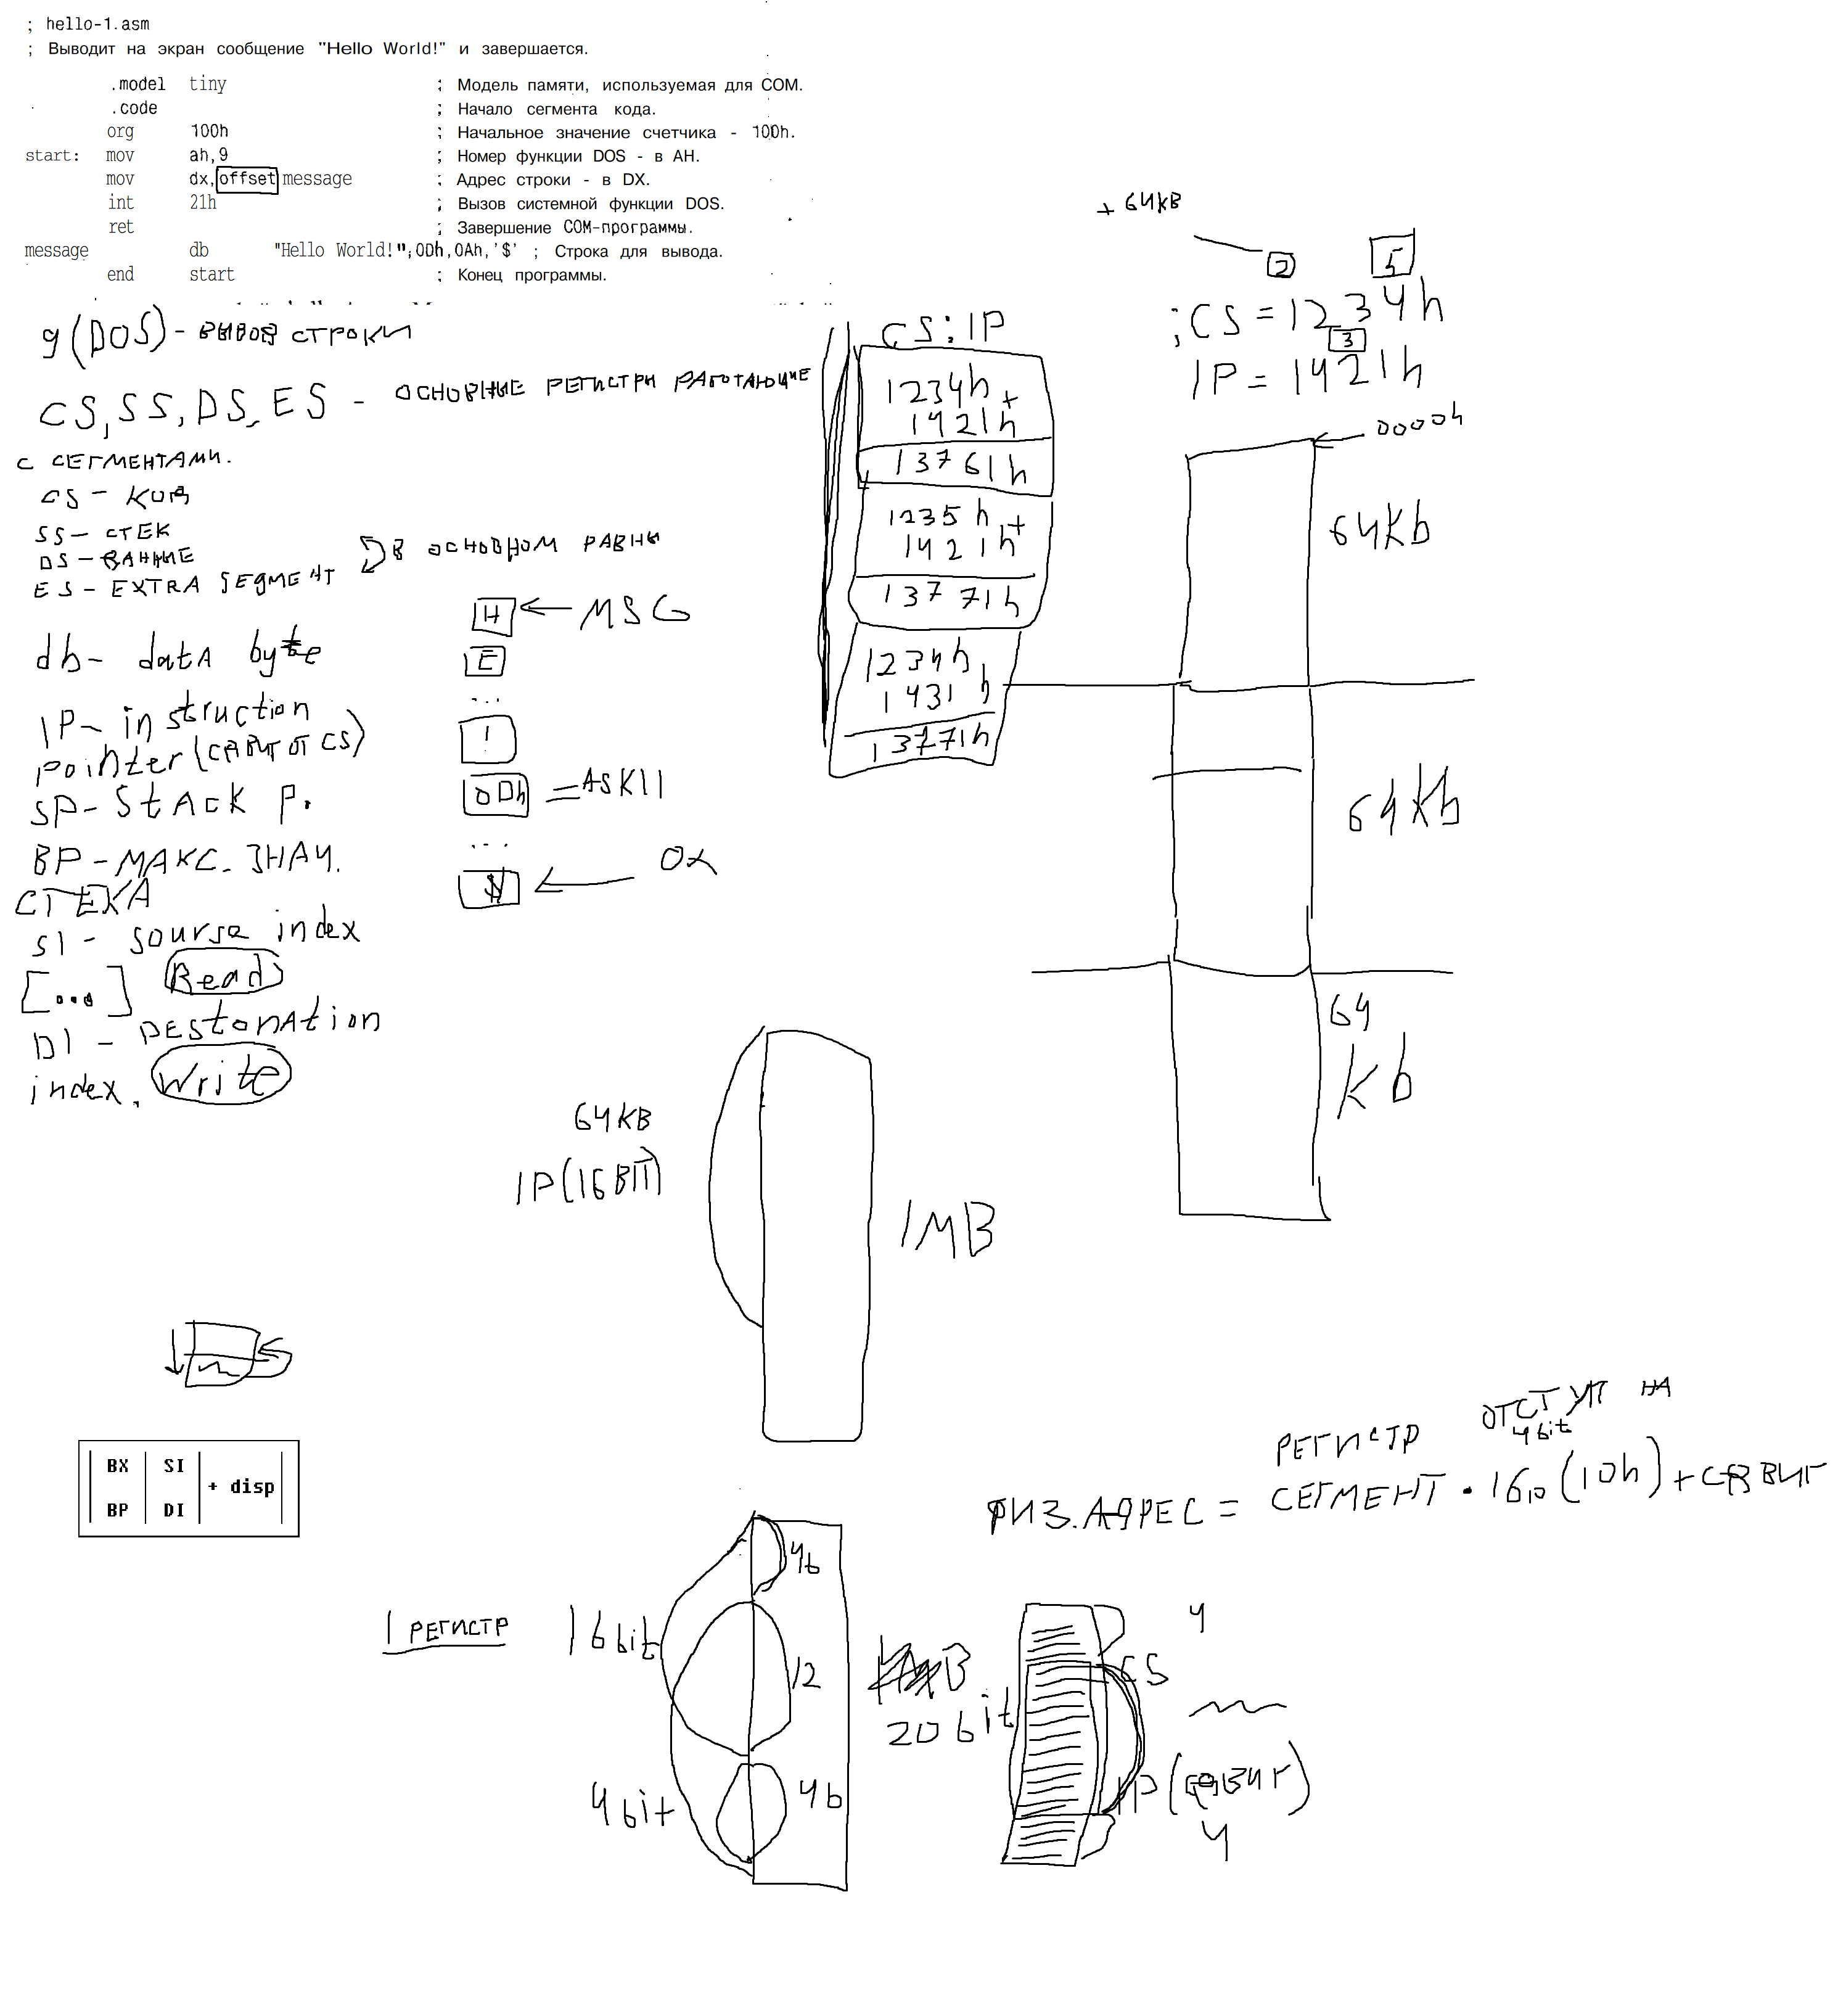 ; hello-1.asm
; Выводит на экран сообщение "Hello World!" и завершается.
.model tiny ; Модель памяти, используемая для COM.
.code ; Начало сегмента кода.
org 100h ; Начальное значение счетчика - 100h.
start: mov ah,9 ; Номер функции DOS - в AH.
mov dx,offset message ; Адрес строки - в DX.
int 21h ; Вызов системной функции DOS.
ret ; Завершение COM-программы.
message db "Hello World!";0Dh,0Ah,'$' ; Строка для вывода.
end start ; Конец программы.
9(DOS) - вывод строки
CS, SS, DS, ES - ОСНОВНЫЕ РЕГИСТРЫ РАБОТАЮЩИЕ
С СЕГМЕНТАМИ.
CS - КОД
SS - СТЕК
DS - ДАННЫЕ
ES - EXTRA SEGMENT
В ОСНОВНОМ РАВНЫ
db - data byte
IP - instruction
pointer (СДВИГ ОТ CS)
SP - Stack P.
BP - МАКС. ЗНАЧ.
СТЕКА
SI - sourse index
[...] Read
DI - DEStonAtion
index. Write
H ← MSG
E
...
!
0Dh = ASKII
...
$ ←
CS:IP
1234h +
1421h
13761h
1235h +
1421h
13771h
1234h
1431h
13771h
+ 64KB
2 5
;CS = 1234h
3
IP = 1421h
0000h
64Kb
64Kb
64
Kb
64KB
IP(16БИТ)
1MB
BX SI + disp
BP DI
РЕГИСТР ОТСТУП НА
4bit
ФИЗ.АДРЕС = СЕГМЕНТ · 16₁₀ (10h) + СДВИГ
1 РЕГИСТР
16bit
4b
12
4bit
4b
20bit
4
CS
IP (СДВИГ)
4